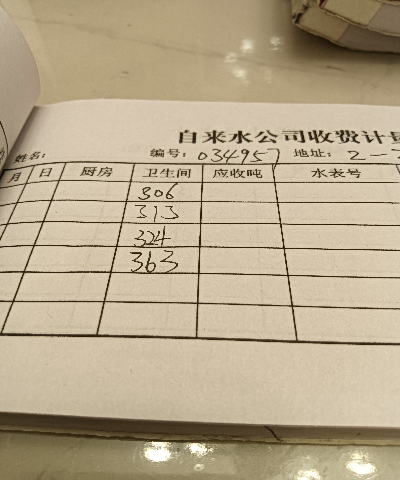 自来水公司收费计
姓名: 编号: 034957 地址: 2-
月 日 厨房 卫生间 应收吨 水表号
306
313
324
363